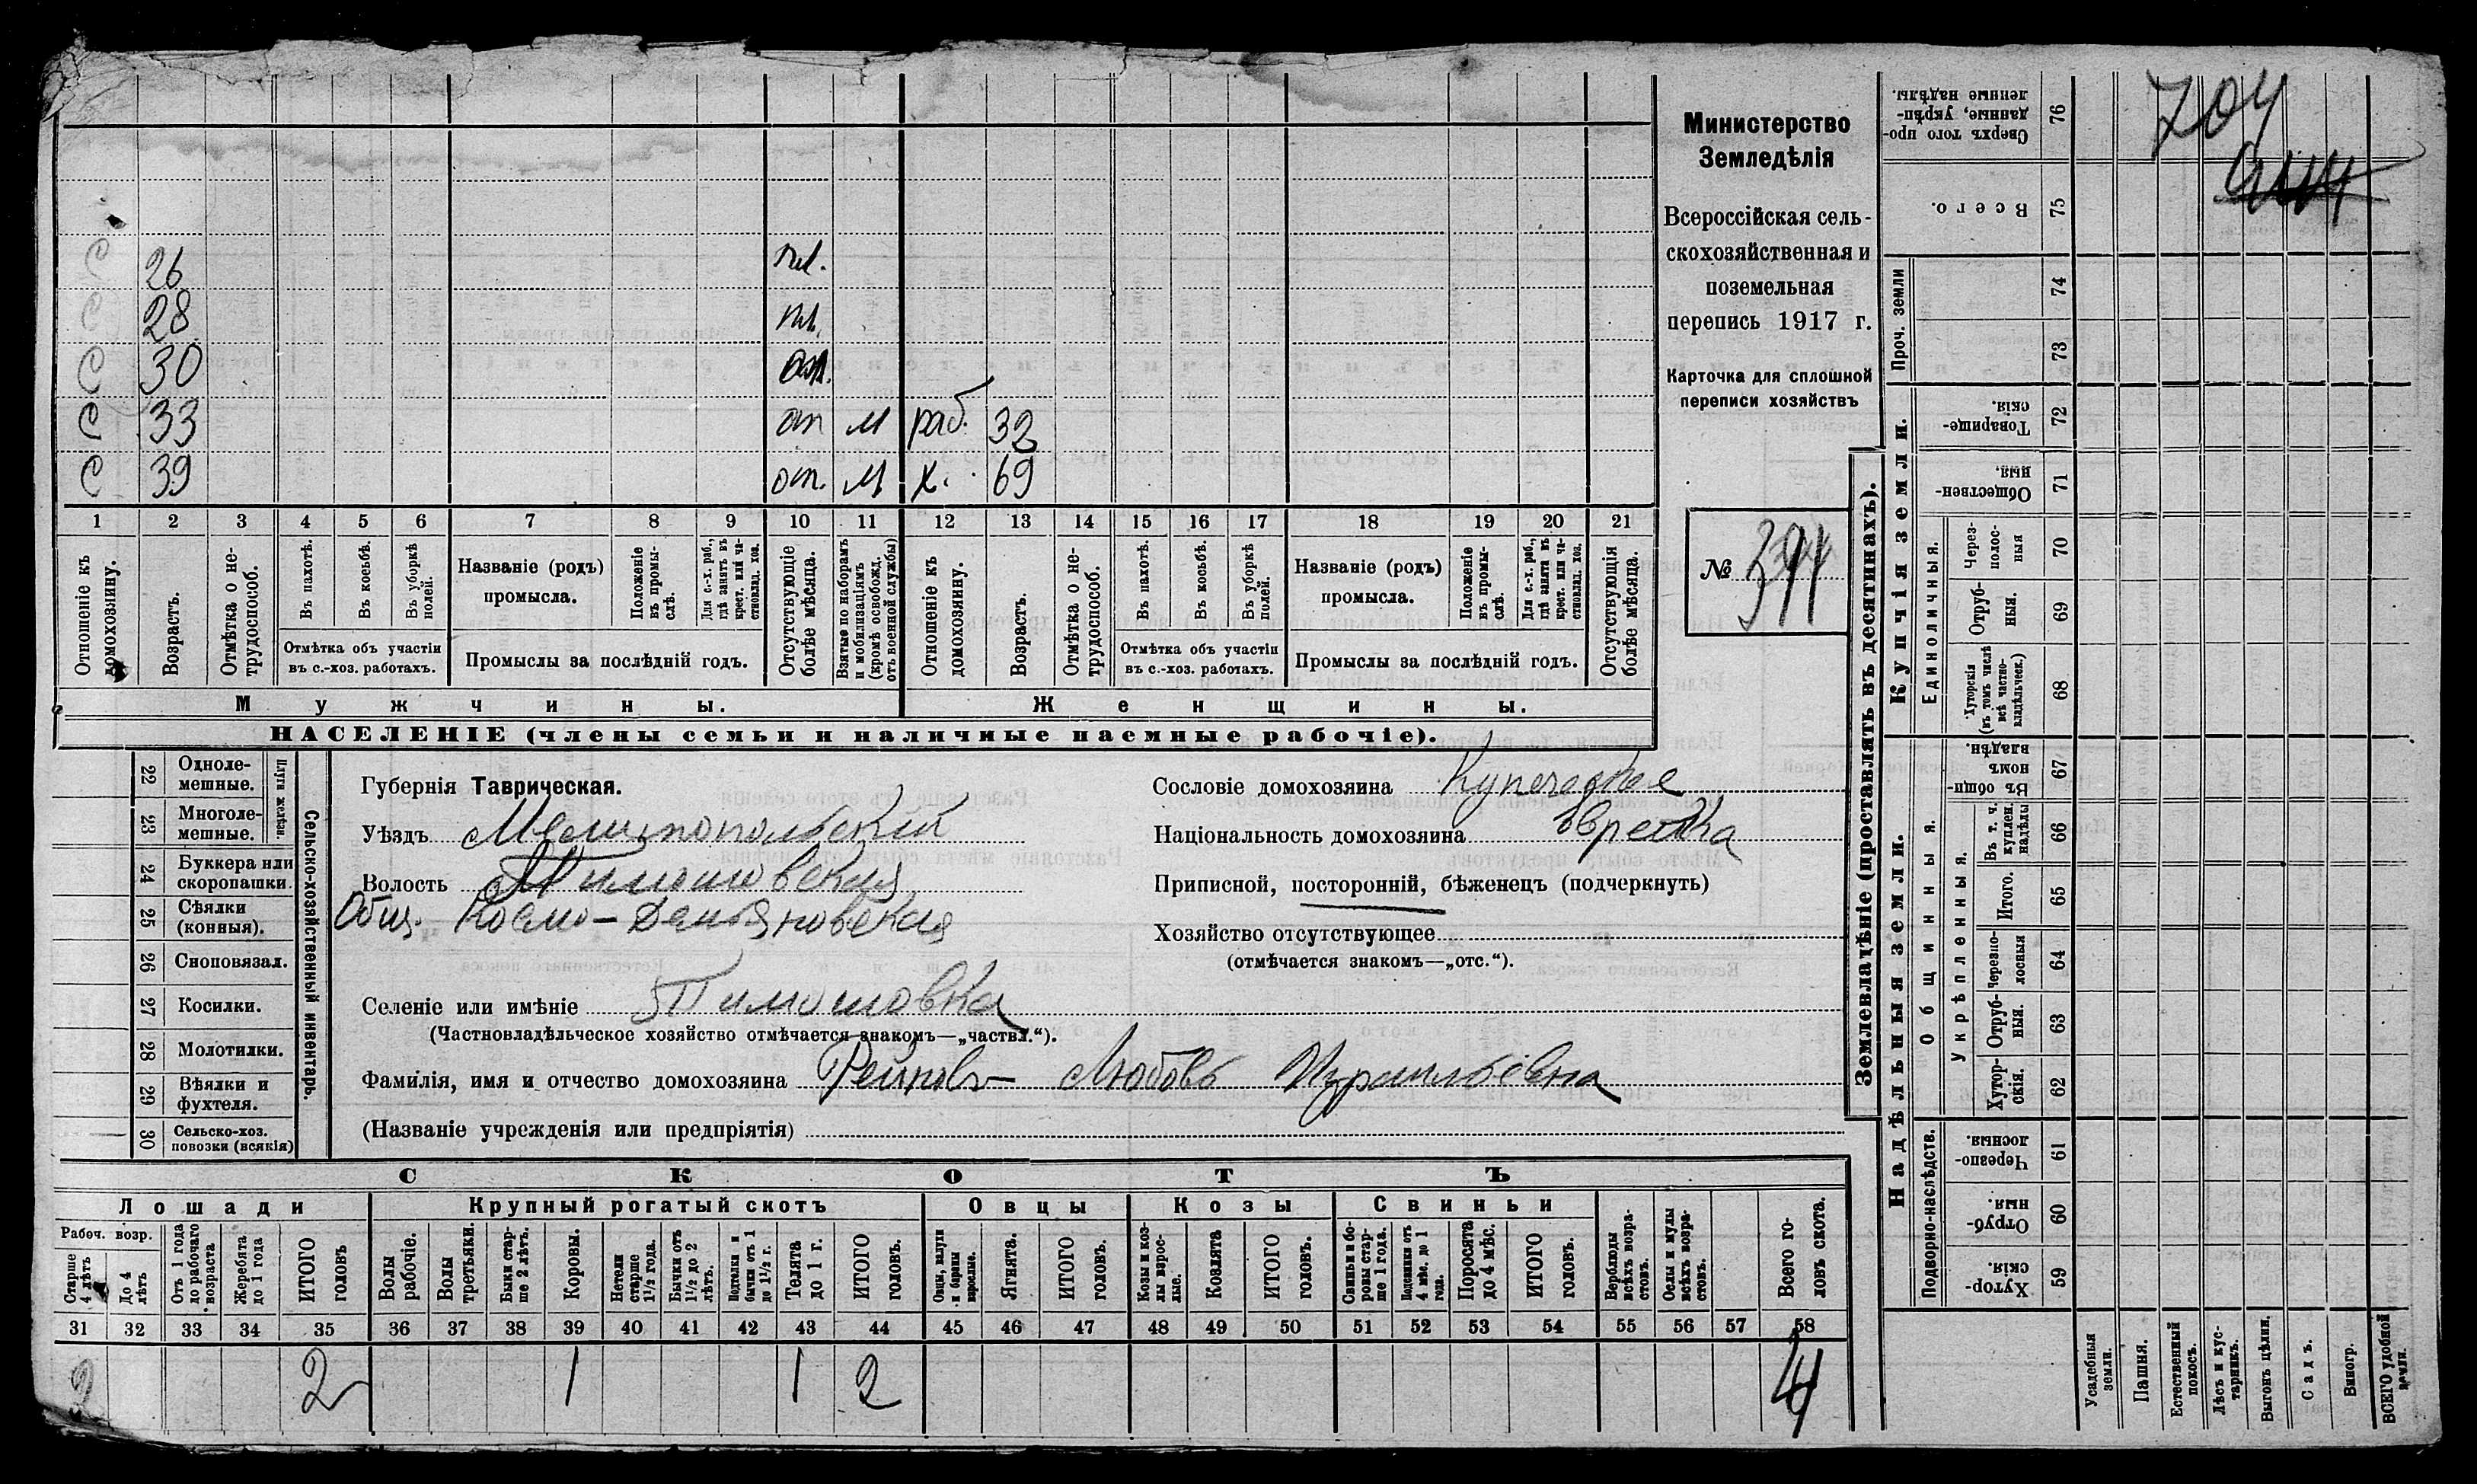 704
Министерство
Земледѣлія
Всероссійская сель-
скохозяйственная и
поземельная
перепись 1917 г.
Карточка для сплошной
переписи хозяйствъ
№ 394
С 26 пл.
С 28 пл.
С 30
С 33 от М раб. 32
С 39 от. М х. 69
1 2 3 4 5 6 7 8 9 10 11 12 13 14 15 16 17 18 19 20 21
Отношеніе къ домохозяину.
Возрастъ.
Отмѣтка о не-трудоспособ.
Въ пахотѣ.
Въ косьбѣ.
Въ уборкѣ полей.
Отмѣтка объ участіи
въ с.-хоз. работахъ.
Названіе (родъ)
промысла.
Положеніе въ промы-слѣ.
Для с.-х. раб., гдѣ занятъ въ крест. или ча-стновлад. хоз.
Промыслы за послѣдній годъ.
Отсутствующіе болѣе мѣсяца.
Взятые по наборамъ и мобилизаціямъ (кромѣ освобожд. отъ военной службы)
Отношеніе къ домохозяину.
Возрастъ.
Отмѣтка о не-трудоспособ.
Въ пахотѣ.
Въ косьбѣ.
Въ уборкѣ полей.
Отмѣтка объ участіи
въ с.-хоз. работахъ.
Названіе (родъ)
промысла.
Положеніе въ промы-слѣ.
Для с.-х. раб., гдѣ занята въ крест. или ча-стновлад. хоз.
Промыслы за послѣдній годъ.
Отсутствующія болѣе мѣсяца.
Мужчины. Женщины.
НАСЕЛЕНІЕ (члены семьи и наличные наемные рабочіе).
22 Однолемешные.
23 Многолемешные.
Плуги желѣзн.
24 Буккера или скоропашки.
25 Сѣялки (конныя).
26 Сноповязал.
27 Косилки.
28 Молотилки.
29 Вѣялки и фухтеля.
30 Сельско-хоз. повозки (всякія)
Сельско-хозяйственный инвентарь.
Губернія Таврическая.
Уѣздъ Мелитопольский
Волость Тимошовская
Общ. Космо-Демьяновская
Селеніе или имѣніе Тимошовка
(Частновладѣльческое хозяйство отмѣчается знакомъ—„частвл.“).
Фамилія, имя и отчество домохозяина Рейновъ Любовь Израильевна
(Названіе учрежденія или предпріятія)
Сословіе домохозяина Купеческое
Національность домохозяина Еврейка
Приписной, посторонній, бѣженецъ (подчеркнуть)
Хозяйство отсутствующее
(отмѣчается знакомъ—„отс.“).
СКОТЪ
Лошади Крупный рогатый скотъ Овцы Козы Свиньи
Рабоч. возр.
Старше 4 лѣтъ
До 4 лѣтъ
Отъ 1 года до рабочаго возраста
Жеребята до 1 года
ИТОГО головъ
Волы рабочіе.
Волы третьяки.
Быки стар-ше 2 лѣтъ.
Коровы.
Нетели старше 1½ года.
Бычки отъ 1½ до 2 лѣтъ.
Подтелки и бычки отъ 1 до 1½ г.
Телята до 1 г.
ИТОГО головъ.
Овцы, валухи и бараны взрослые.
Ягнята.
ИТОГО головъ.
Козы и коз-лы взрос-лые.
Козлята
ИТОГО головъ.
Свиньи и бо-ровы стар-ше 1 года.
Подсвинки отъ 4 мѣс. до 1 года.
Поросята до 4 мѣс.
ИТОГО головъ.
Верблюды всѣхъ возра-стовъ.
Ослы и мулы всѣхъ возра-стовъ.
Всего го-ловъ скота.
31 32 33 34 35 36 37 38 39 40 41 42 43 44 45 46 47 48 49 50 51 52 53 54 55 56 57 58
2 2 1 1 2 4
Землевладѣніе (проставлять въ десятинахъ).
Надѣльныя земли. Купчія земли. Проч. земли
Подворно-наслѣдств.
Общинныя.
Укрѣпленныя.
Единоличныя.
Хутор-скія. 59
Отруб-ныя. 60
Черезпо-лосныя. 61
Хутор-скія. 62
Отруб-ныя. 63
Черезпо-лосныя 64
Итого. 65
Въ т. ч. куплен. надѣлы 66
Въ общин-номъ владѣн. 67
Хуторскія (въ томъ числѣ всѣ частно-владѣльческ.) 68
Отруб-ныя. 69
Через-полос-ныя 70
Обществен-ныя. 71
Товарище-скія. 72
73
74
Всего. 75
Сверхъ того про-данные, укрѣп-ленные надѣлы. 76
Усадебныя земли.
Пашня.
Естественный покосъ.
Лѣсъ и кус-тарникъ.
Выгонъ цѣлин.
Садъ.
Виногр.
ВСЕГО удобной земли.